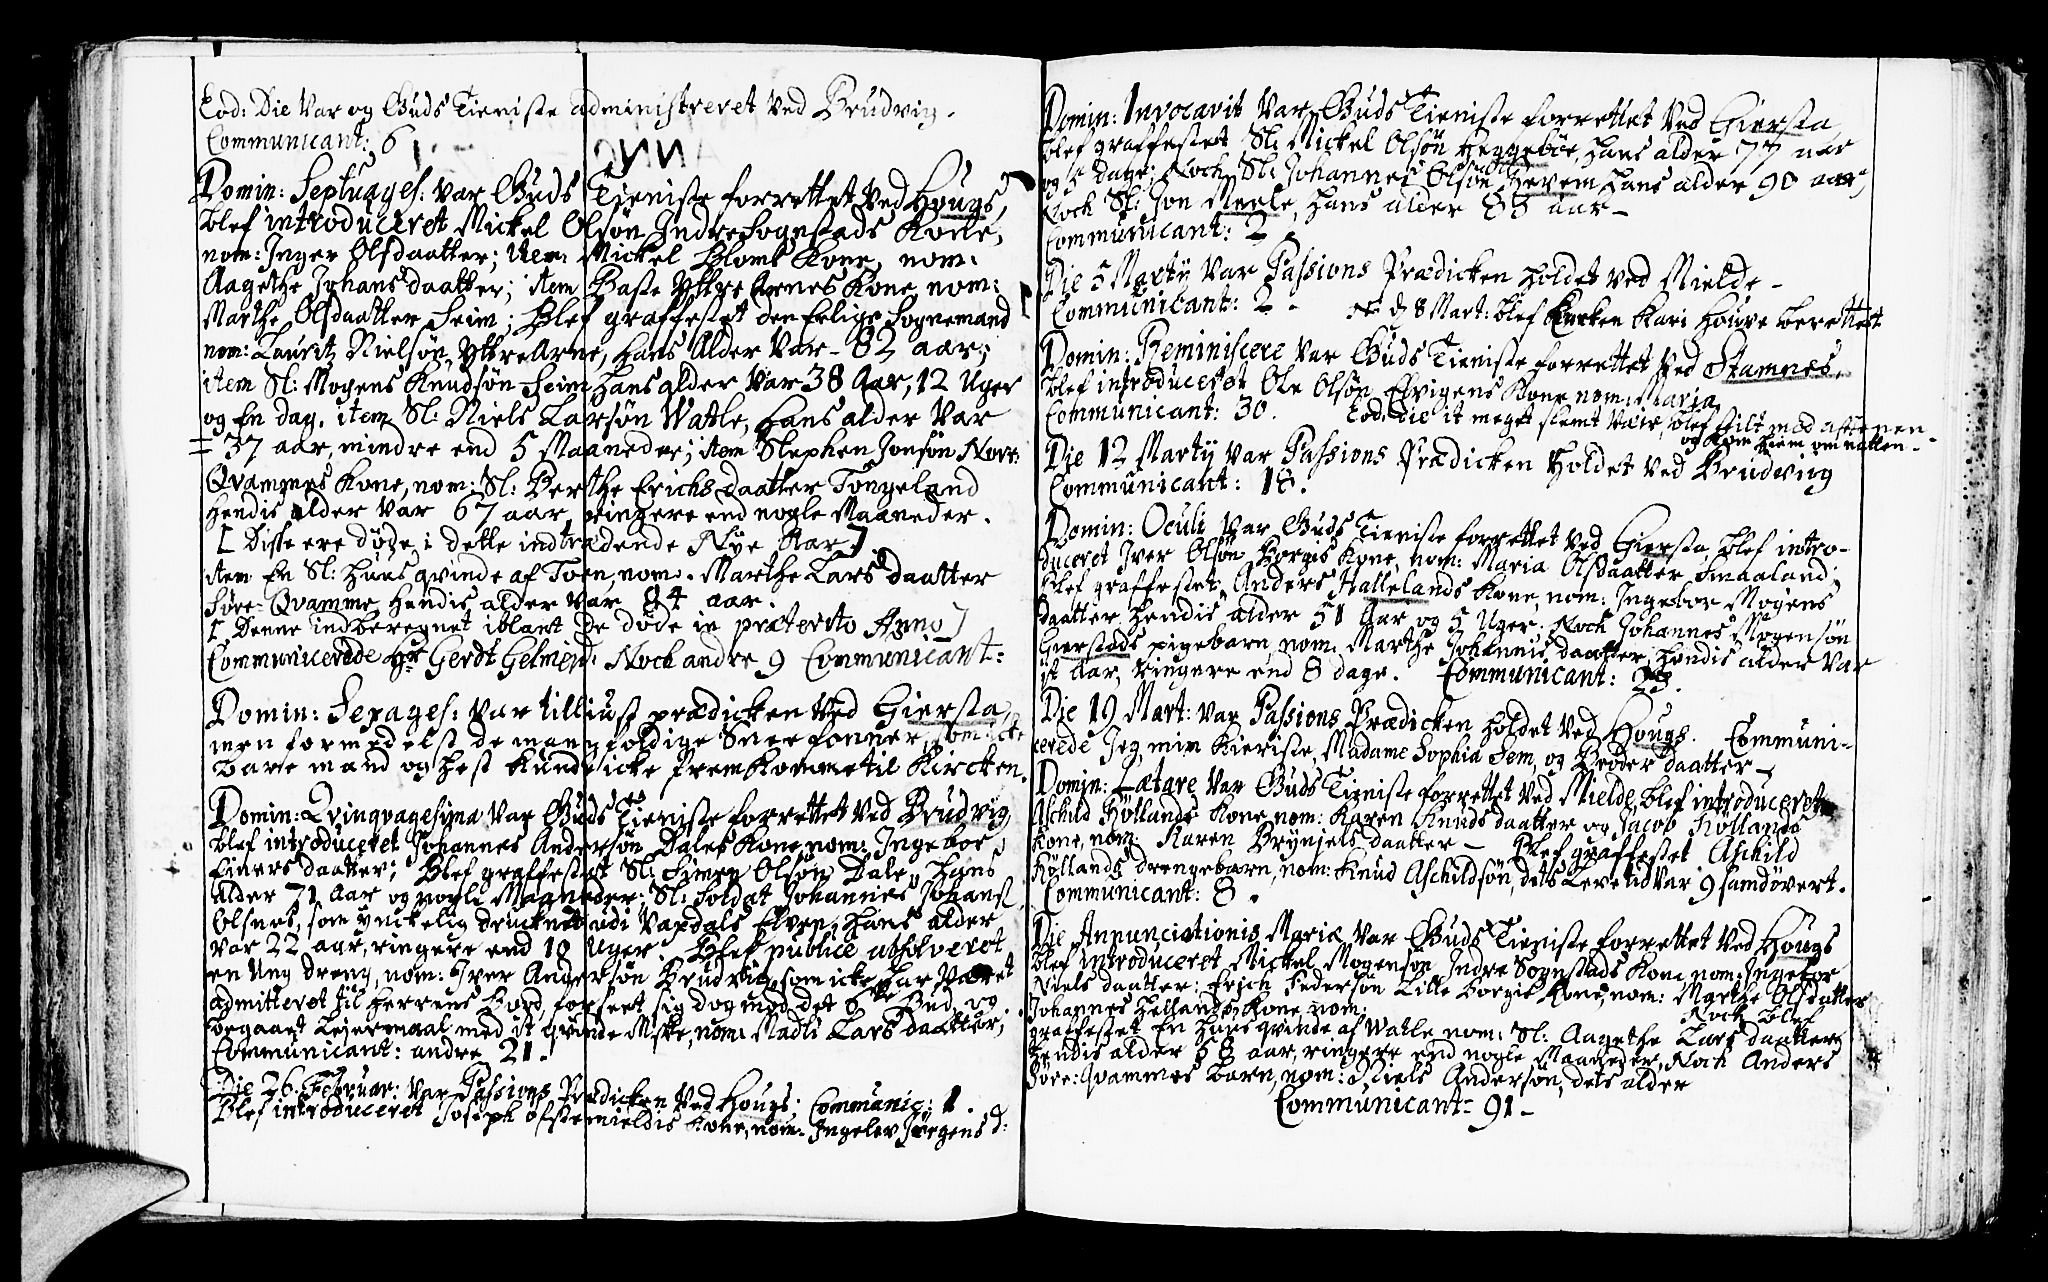 Eod: Die var og Guds Tieniste administreret ved Brudvig.
Communicant: 6
Domin: Septuages: var Guds Tieniste forrettet ved Hougs,
blef introduceret Mickel Olsøn Indre Sognstads Kone,
nom: Inger Olsdaatter; item Mickel Blomb Kone, nom:
Aagethe Johansdaatter; item Baste Yttre Arnes Kone nom:
Marthe Olsdaatter Seim; Blef graffestet den Erlige Sognemand
nom: Lauritz Nielsøn, Yttre Arne, hans Alder var 82 aar;
item Sl: Mogens Knudsøn Seim hans alder var 38 Aar, 12 Uger
og En dag. item Sl: Niels Larsøn Watle, hans alder var
37 aar, mindre end 5 Maaneder; item Stephen Jonsøn Norr:
Qvammes Kone, nom: Sl: Berthe Erichsdaatter Tongeland
hendis alder var 67 aar ringere end nogle Maaneder.
[ Disse ere døde i dette indtrædende Nye Aar ]
item En Sl: huus qvinde af Toen, nom: Marthe Larsdaatter
Søre-Qvamme, hendis alder var 84 aar.
[ Denne indberegnet iblant de døde in præterito Anno ]
Communicerede Hr Gerdt Gelmeyd: Noch andre 9 Communicant:
Domin: Sexages: var tilliust prædicken ved Giersta,
men formedelst de mangfoldige Sneefonner, som icke
bare mand og hest kunde icke fremkomme til Kircken.
Domin: Qvinqvagesima var Guds Tieniste forrettet ved Brudvig
blef introduceret Johannes Andersøn Dales Kone, nom: Ingebor
Einersdaatter; Blef graffestet Sl: Simen Olsøn Dale, hans
alder 71 Aar og nogle Maaneder; Sl: Soldat Johannes Johans:
Olsnes, som ynckelig drucknet udi Vaxdals Elven, hans alder
var 22 aar, ringere end 18 Uger. Blef publice absolveret
en Ung dreng, nom: Iver Andersøn Brudvig, som icke har været
admitteret til Herrens bord, forseet sig dog mod det 6te Bud, og
begaaet Leiermaal med it qvinde Mske, nom: Madli Larsdaatter;
Communicant: andre 21.
Die 26. Februar: var Passions Prædicken ved Hougs; Communic: 1.
Blef introduceret Joseph Ofstemieldis Kone, nom: Ingelev Jørgens d:
Domin: Invocavit var Guds Tieniste forrettet ved Giersta
blef graffestet Sl: Mickel Olsøn Heggebøe, hans alder 77 aar
og 5 dage; Noch Sl: Johannes Olsøn Hevem hans alder 90 aar,
Noch Sl: Jon Meele, hans alder 83 aar
Communicant: 2
Die 5 Martij var Passions Prædicken holdet ved Mielde
Communicant: 2. d 8 Mart: blef Kari Houve berettet
Domin: Reminiscere var Guds Tieniste forrettet ved Stamnes,
blef introduceret Ole Olsøn Elvigens Kone nom: Maria
Communicant: 30. Eod: die it meget slemt Væir, blef stilt mod aftenen
og kom hiem om natten
Die 12 Martij var Passions Prædicken holdet ved Brudvig
Communicant: 18.
Domin: Oculi var Guds Tieniste forrettet ved Giersta, blef intro-
duceret Iver Olsøn Borges Kone, nom: Maria Olsdaatter Smaaland;
blef graffestet Anders Hallelands Kone, nom: Ingebor Mogens
daatter, hendis alder 51 Aar og 5 Uger. Noch Johannes Mogensøn
Gierstads pigebarn, nom: Marthe Johannis daatter, hendis alder var
it Aar, ringere end 8 dage. Communicant: 23.
Die 19 Mart: var Passions Prædicken holdet ved Hougs. Communi-
cerede Jeg, min Kieriste, Madame Sophia Sem, og Broder daatter
Domin: Lætare var Guds Tieniste forrettet ved Mielde, blef introduceret
Aschild Høllands Kone, nom: Karen Knudsdaatter og Jacob Høllands
Kone, nom: Karen Brynjels daatter Blef graffestet Aschild
Høllands drengebarn, nom: Knud Aschildsøn, dets Levetid var 9 samdøvert.
Communicant: 8.
Die Annunciationis Mariæ var Guds Tieniste forrettet ved Hougs
blef introduceret Mickel Mogensøn Indre Sognstads Kone nom: Ingebor
Niels daatter; Erich Pedersøn Lille Borgis Kone, nom: Marthe Olsdatter
Johannes Hellands Kone, nom: Noch blef
graffestet En huus qvinde af Watle nom: Sl: Aagethe Lars daatter
hendis alder 58 aar, ringere end nogle Maaneder, Noch Anders
Søre:Qvammes barn, nom: Niels Andersøn, dets alder
Communicant: 91